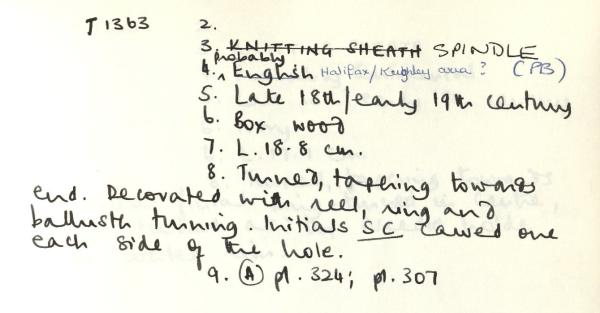 T 1363 2.
3. KNITTING SHEATH SPINDLE
probably
4. English Halifax/Keighley area? (PB)
5. Late 18th/early 19th century
6. Box wood
7. L. 18.8 cm.
8. Turned, tapering towards
end. Decorated with reel, ring and
baluster turning. Initials SC carved one
each side of the hole.
9. (A) pl. 324; pl. 307